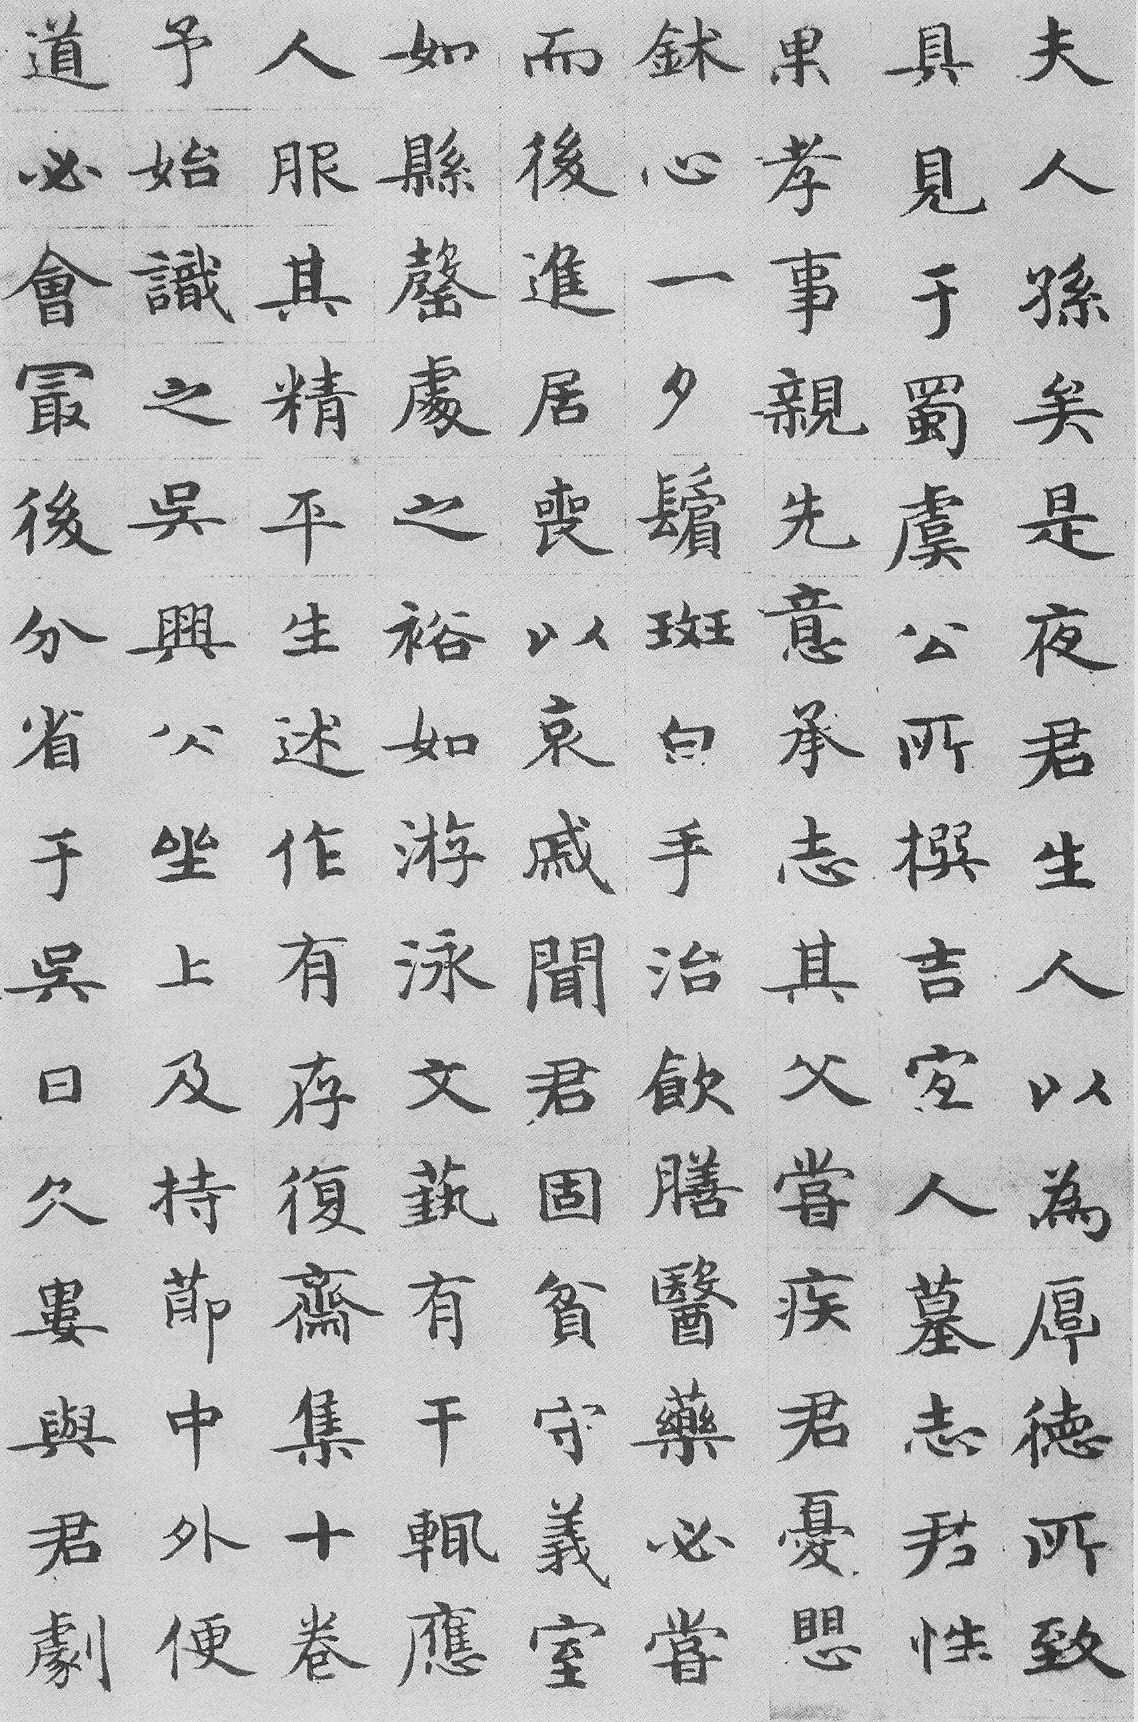 夫人孫矣是夜君生人以為厚德所致
具見于蜀虞公所撰吉宜人墓志君性
果孝事親先意承志其父嘗疾君憂思
鉥心一夕鬚斑白手治飲膳醫藥必嘗
而後進居喪以哀戚聞君固貧守義室
如縣罄處之裕如游泳文藝有干輒應
人服其精平生述作有存復齋集十卷
予始識之吳興公坐上及持節中外便
道必會冣後分省于吳日久婁與君劇